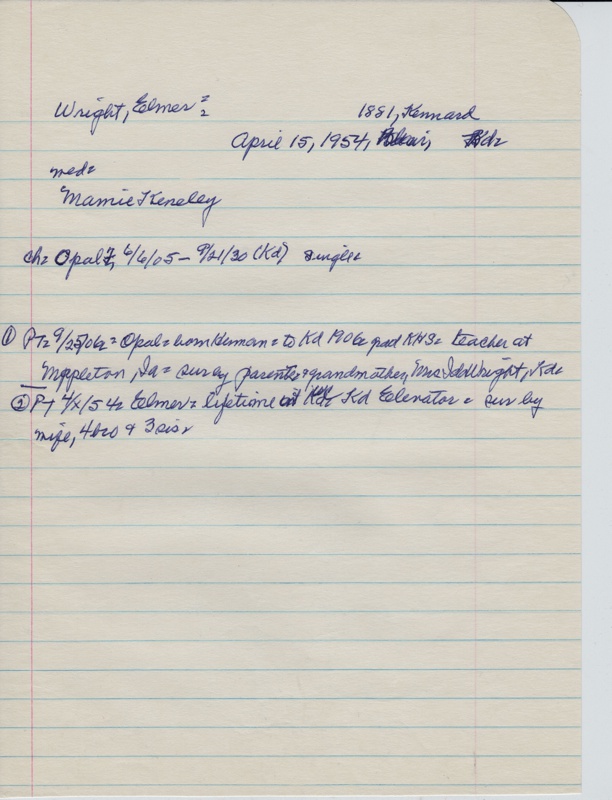 Wright, Elmer = 2 1881, Kennard
April 15, 1954, Blair,
med=
Mamie Keneley
ch= Opal 7, 6/6/05 - 9/21/30 (Kd) single
① PT= 9/25/ = Opal = born Herman = to Kd 1906 grad KHS = teacher at
Mapleton, Ia = sur by parents & grandmother, Mrs Ida Wright, Kd
② PT 4/X/54 = Elmer = lifetime Kd Elevator = sur by
wife, 4 bro & 3 sis